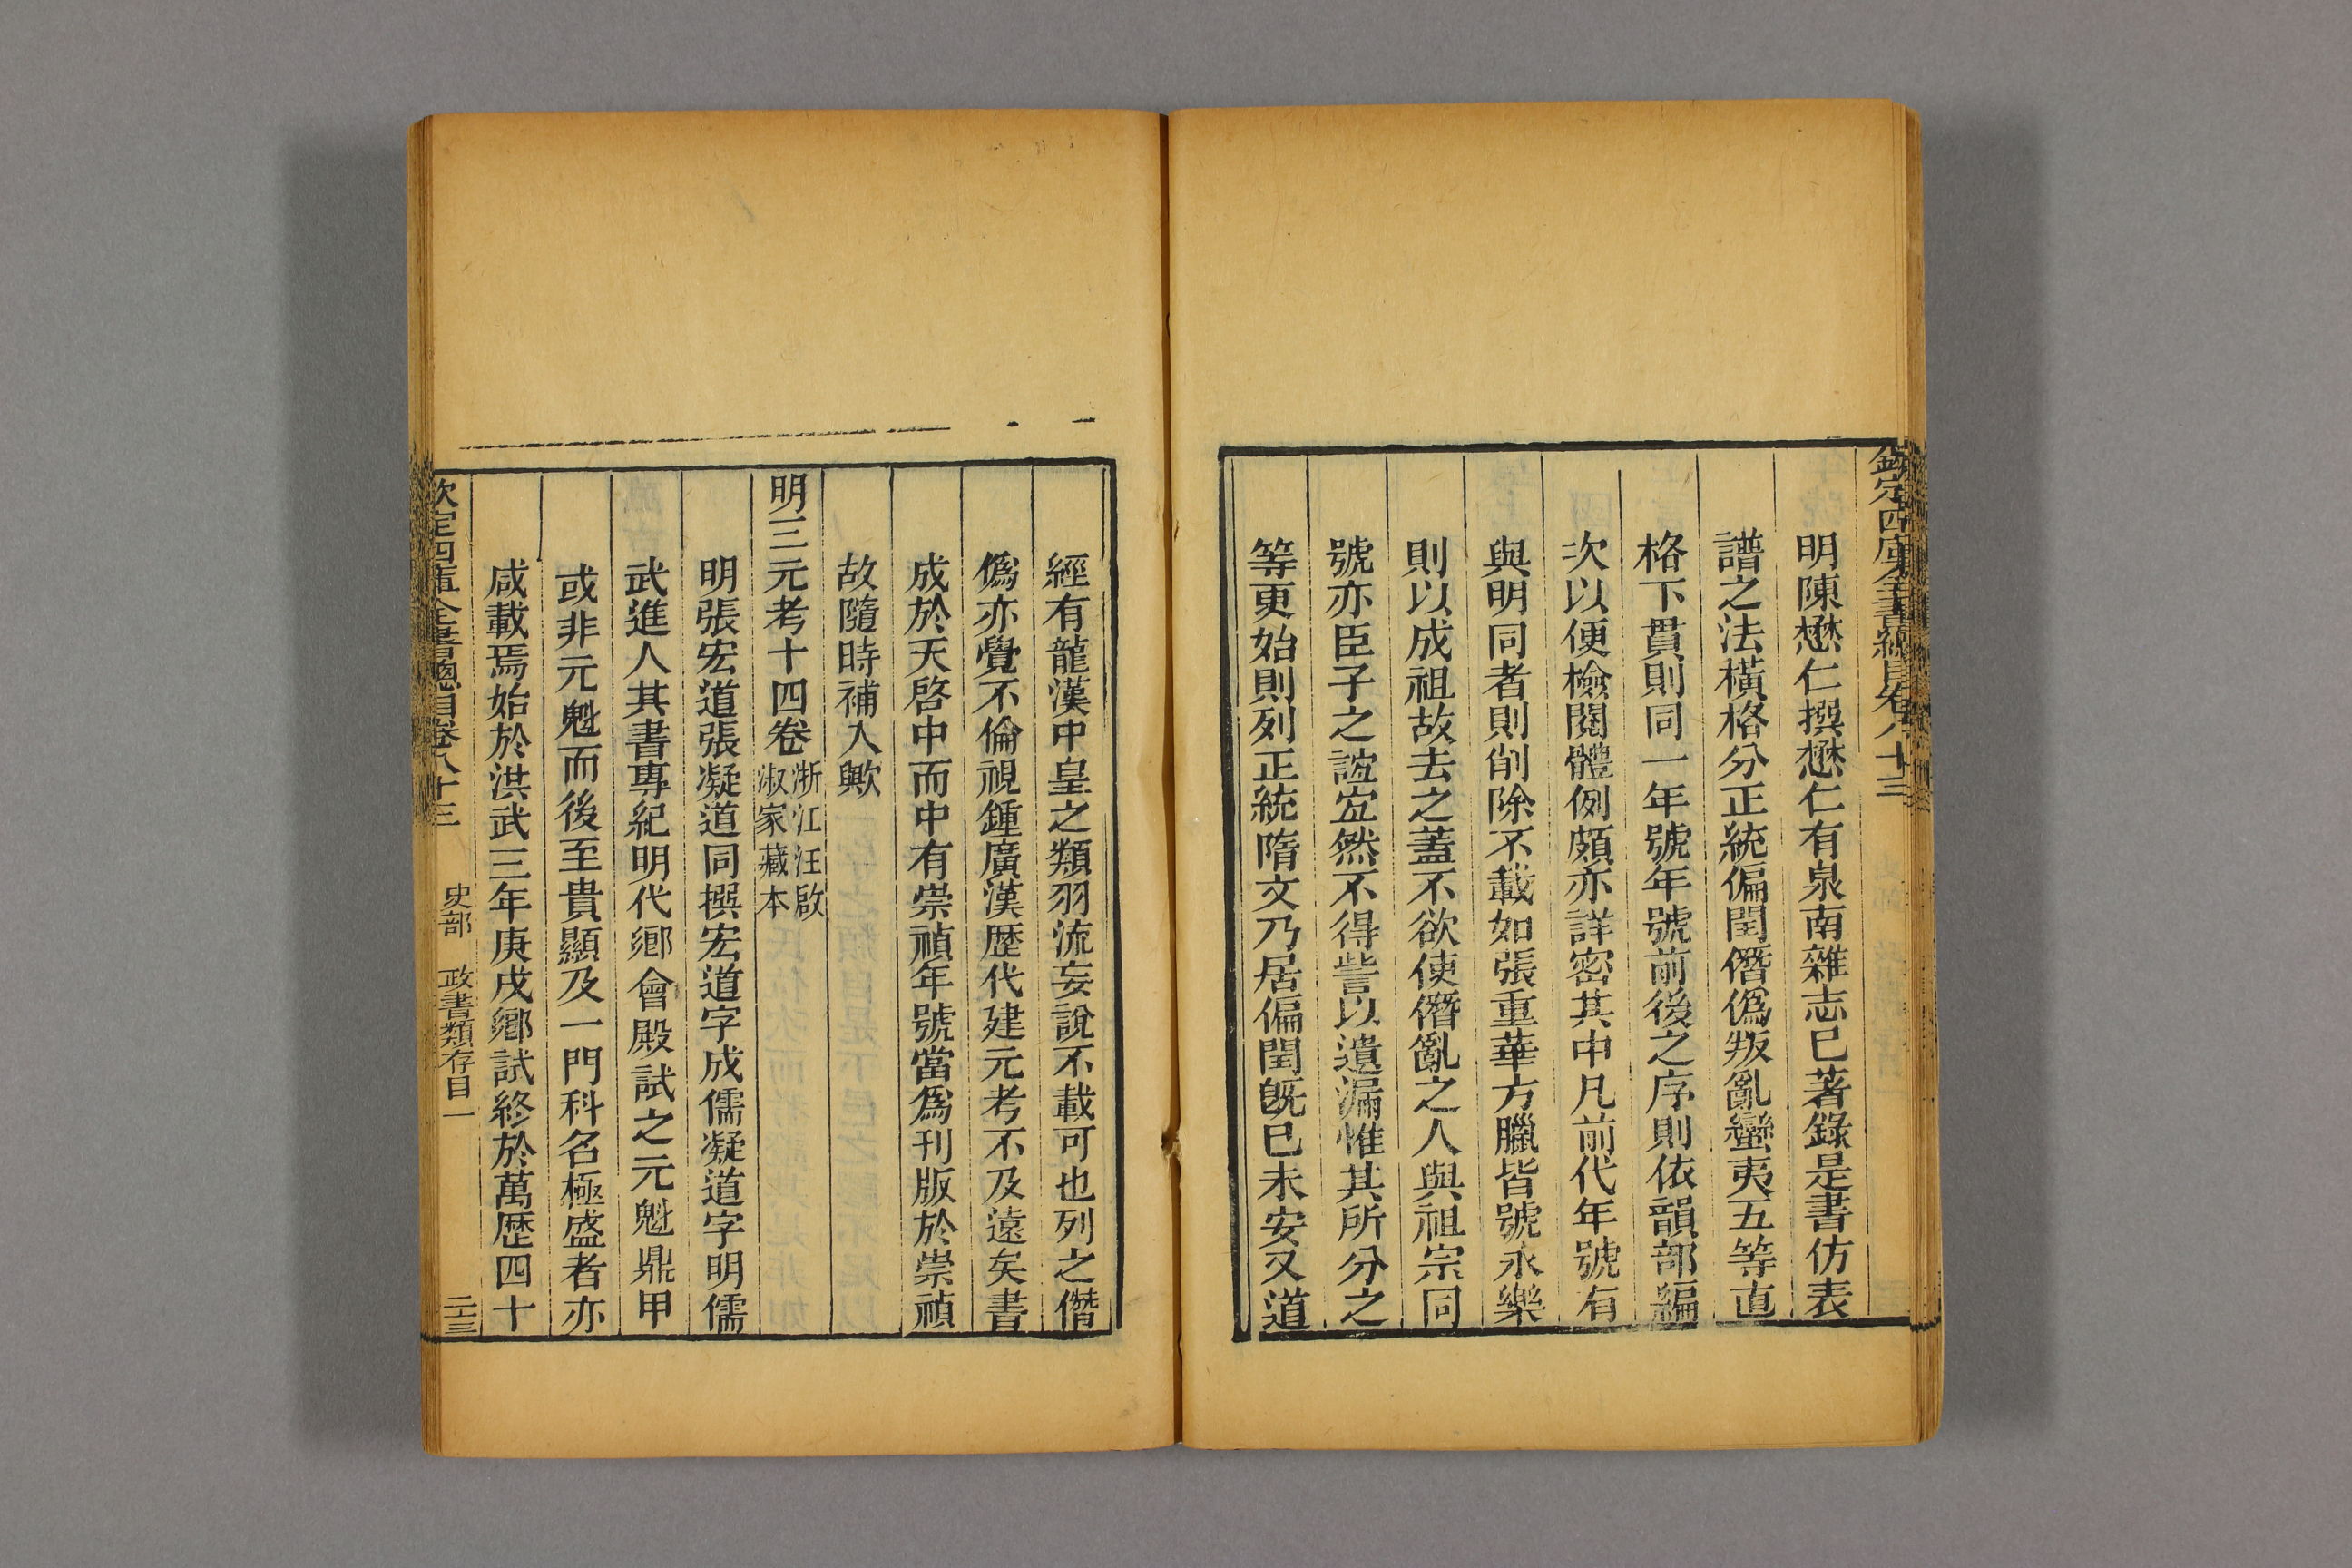 欽定四庫全書總目卷八十三
明陳懋仁撰懋仁有泉南雜志已著錄是書仿表
譜之法橫格分正統偏閏僭僞叛亂蠻夷五等直
格下貫則同一年號年號前後之序則依韻部編
次以便檢閱體例頗亦詳密其中凡前代年號有
與明同者則削除不載如張重華方臘皆號永樂
則以成祖故去之蓋不欲使僭亂之人與祖宗同
號亦臣子之誼宜然不得訾以遺漏惟其所分之
等更始則列正統隋文乃居偏閏旣已未安又道
經有龍漢中皇之類羽流妄說不載可也列之僭
僞亦覺不倫視鍾廣漢歷代建元考不及遠矣書
成於天啓中而中有崇禎年號當爲刊版於崇禎
故隨時補入歟
明三元考十四卷浙江汪啟
淑家藏本
明張宏道張凝道同撰宏道字成儒凝道字明儒
武進人其書專紀明代鄉會殿試之元魁鼎甲
或非元魁而後至貴顯及一門科名極盛者亦
咸載焉始於洪武三年庚戌鄉試終於萬歷四十
欽定四庫全書總目卷八十三 史部 政書類存目一 二三